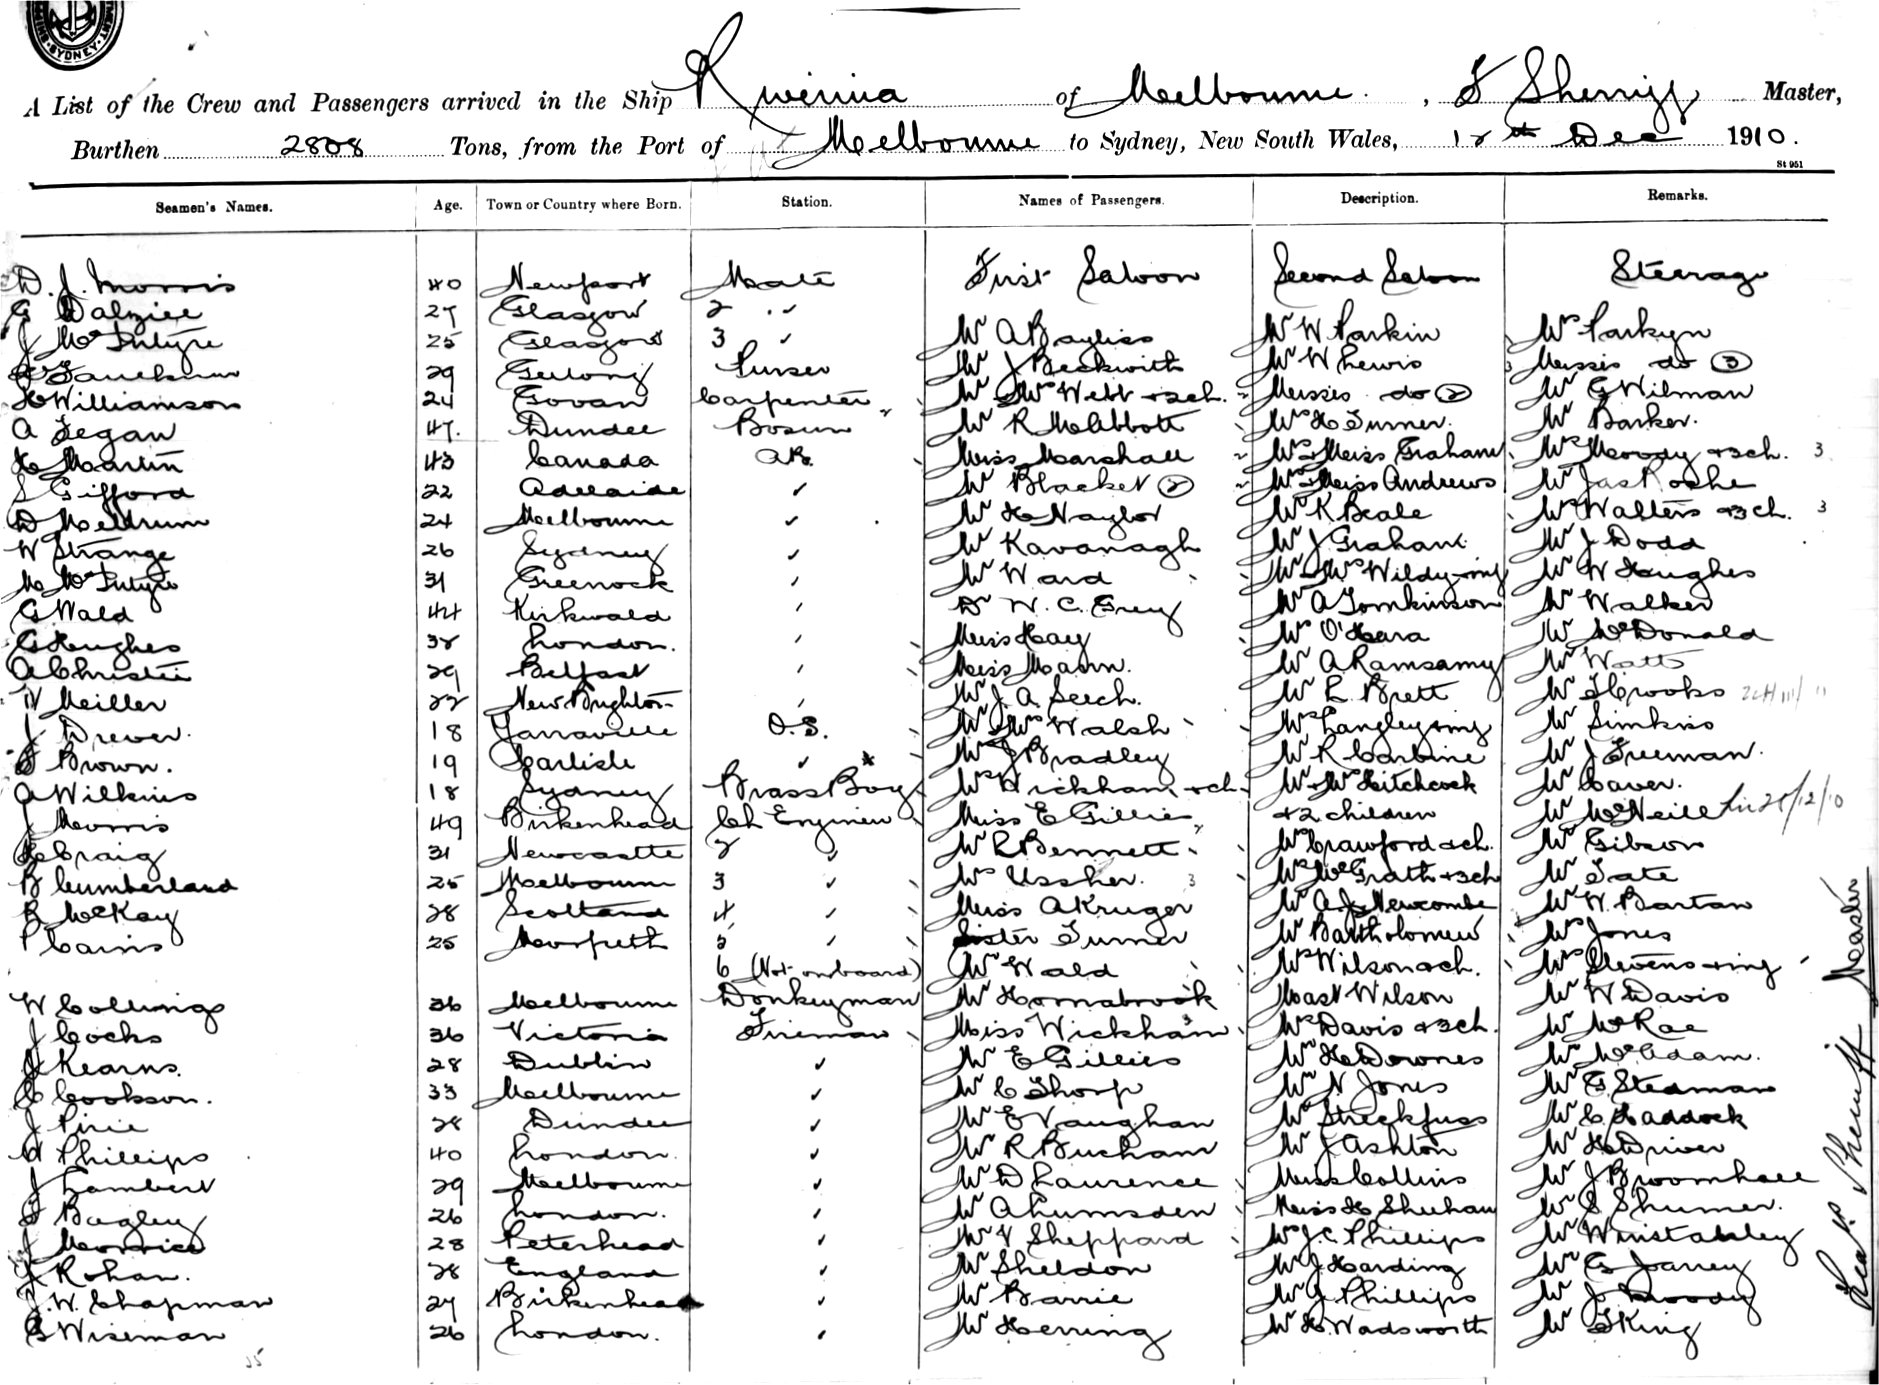 SYDNEY
A List of the Crew and Passengers arrived in the Ship Riverina of Melbourne, F Sherriff Master,
Burthen 2808 Tons, from the Port of Melbourne to Sydney, New South Wales, 12th Dec 1910.
St 951
Seamen's Names. Age. Town or Country where Born. Station. Names of Passengers. Description. Remarks.
D. J. Morris 40 Newport Mate First Saloon Second Saloon Steerage
G Dalziel 27 Glasgow 2 "
J McIntyre 25 Glasgow 3 " Mr A Bayliss Mr W Parkin Mrs Parkyn
29 Geelong Purser Mr J Beckwith Mr W Lewis Misses do 3
H Williamson 24 Govan Carpenter Mr & Mrs Webb + 3 ch. Misses do 2 Mr G Wilman
A Fegan 47. Dundee Bosun Mr R McAbbott Mrs H Turner. Mr Barker.
H Martin 43 Canada A.B. Miss Marshall Mrs & Miss Graham Mrs Moody + 3 ch. 3
S Gifford 22 Adelaide ✓ Mr Blacket 2 Mrs & Miss Andrews Mr Jas Roche
D Meldrum 24 Melbourne ✓ Mr H Naylor Mr K Beale Mrs Walters + 3 ch. 3
W Strange 26 Sydney ✓ Mr Kavanagh Mr J Graham Mr J Dodd
M McIntyre 31 Greenock Mr Ward Mr & Mrs Wildy + inf Mr W Hughes
G Wald 44 Kirkwald Dr W. C. Grey Mr A Tomkinson Mr Walker
G Hughes 32 London. Miss Hay Mrs O'Hara Mr McDonald
A Christie 29 Belfast Miss Mann. Mr A Ramsamy Mr Watts
W Meiller 22 New Brighton Mr J. A. Leech. Mr L Brett Mr T Crooks
J Drever. 18 Yarraville O.S. Mr & Mrs Walsh Mrs Langley + inf Mr Simkins
F Brown. 19 Carlisle ✓ Mr J Bradley Mr R Carbine Mr J Freeman.
A Wilkins 18 Sydney Brass Boy Mrs Wickham + ch Mr & Mrs Hitchcock Mr Caver.
J Morris 49 Birkenhead Ch Engineer Miss E Gillies + 2 children Mr McNeill 28/12/10
H Craig 31 Newcastle 2 ✓ Mr L Bennett Mrs Crawford + ch. Mr Gibson
B Cumberland 25 Melbourne 3 ✓ Mrs Ussher. 3 Mrs McGrath + 3 ch Mr Tate
R McKay 28 Scotland 4 ✓ Miss A Kruger Mr A. J. Newcombe Mr W. Bartan
P Cairns 25 Morpeth 5 ✓ Sister Turner Mr Bartholomew Mrs Jones
6 (Not on board) Mr Wald Mrs Wilson + ch. Mrs Stevens + inf
W Collings 36 Melbourne Donkeyman Mr Hornabrook Mast Wilson Mr W Davis
J Cocks 36 Victoria Fireman Miss Wickham Mrs Davis + 3 ch. Mr McRae
J Kearns. 28 Dublin ✓ Mr E Gillies Mr H Downes Mr McAdam.
C Cookson. 33 Melbourne ✓ Mr C Thorp Mr N. Jones Mr G Stedman
J Pirie 28 Dundee ✓ Mr E Vaughan Mr Streckfuss Mr C Haddock
W Phillips 40 London. ✓ Mr R Bucham Mr J Ashton Mr H Driver
J Lambert 29 Melbourne ✓ Mr D Laurence Miss Collins Mr J Broomhall
F Bagley 26 London. ✓ Mr A Lumsden Miss H Sheehan Mr S Shumer.
J Morrice 28 Peterhead ✓ Mr V Sheppard Mrs J. C. Phillips Mr Winstanley
J Rohan. 28 England ✓ Mr Sheldon Mr J Harding Mr G Janey
J. W. Chapman 27 Birkenhead ✓ Mr Barrie Mr J Phillips Mr J Moody
G Wiseman 26 London. ✓ Mr Herring Mr H. Wadsworth Mr T King
35
Sherriff Master